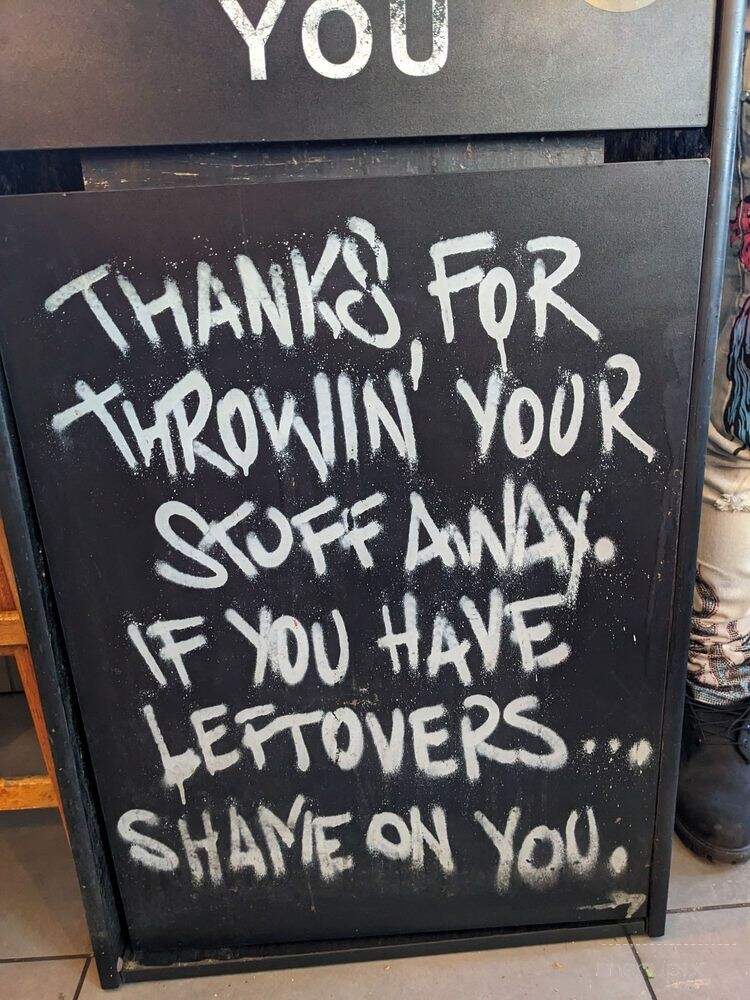 YOU
THANKS, FOR
THROWIN' YOUR
STUFF AWAY.
IF YOU HAVE
LEFTOVERS...
SHAME ON YOU.